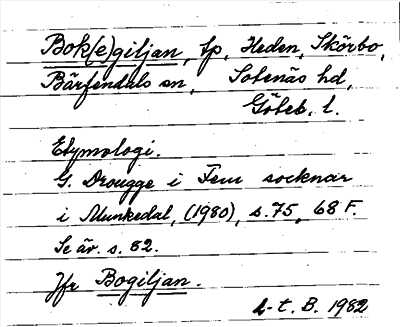 Bok(e)giljan, tp, Heden, Skörbo,
Bärfendals sn, Sotenäs hd,
Göteb. l.
Etymologi.
G. Drougge i Fem socknar
i Munkedal, (1980), s. 75, 68 F.
Se äv. s. 82.
Jfr Bogiljan.
L-t. B. 1982